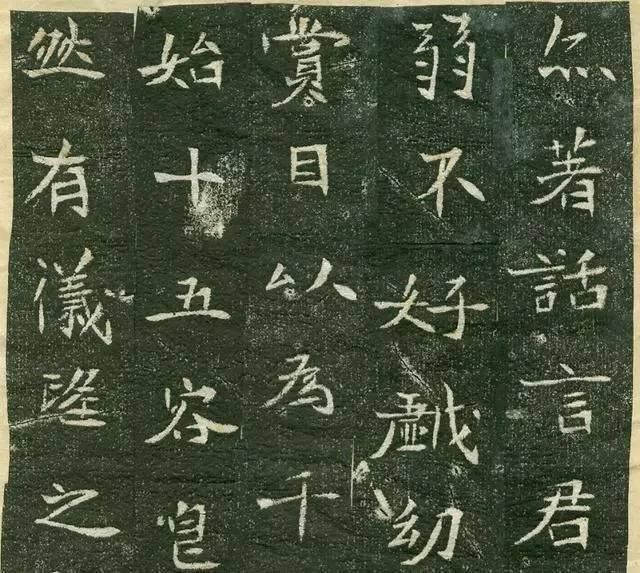 亦著話言君
弱不好戲幼
賞目以為千
始十五容皃
然有儀之